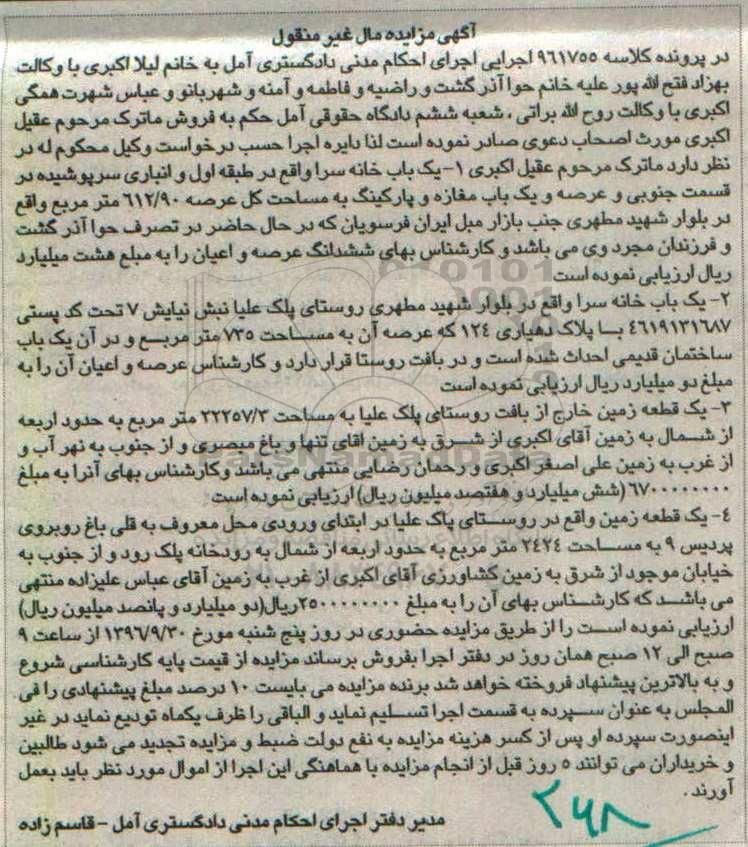 آگهی مزایده مال غیر منقول
در پرونده کلاسه ۹۶۱۷۵۵ اجرایی اجرای احکام مدنی دادگستری آمل به خانم لیلا اکبری با وکالت
بهزاد فتح الله پور علیه خانم حوا آذر گشت و راضیه و فاطمه و آمنه و شهربانو و عباس شهرت همگی
اکبری با وکالت روح الله براتی ، شعبه ششم دادگاه حقوقی آمل حکم به فروش ماترک مرحوم عقیل
اکبری مورث اصحاب دعوی صادر نموده است لذا دایره اجرا حسب درخواست وکیل محکوم له در
نظر دارد ماترک مرحوم عقیل اکبری ۱- یک باب خانه سرا واقع در طبقه اول و انباری سرپوشیده در
قسمت جنوبی و عرصه و یک باب مغازه و پارکینگ به مساحت کل عرصه ۶۱۲/۹۰ متر مربع واقع
در بلوار شهید مطهری جنب بازار مبل ایران فرسویان که در حال حاضر در تصرف حوا آذر گشت
و فرزندان مجرد وی می باشد و کارشناس بهای ششدانگ عرصه و اعیان را به مبلغ هشت میلیارد
ریال ارزیابی نموده است
۲- یک باب خانه سرا واقع در بلوار شهید مطهری روستای پلک علیا نبش نیایش ۷ تحت کد پستی
۴۶۱۹۱۳۱۶۸۷ با پلاک دهیاری ۱۲۴ که عرصه آن به مساحت ۷۳۵ متر مربع و در آن یک باب
ساختمان قدیمی احداث شده است و در بافت روستا قرار دارد و کارشناس عرصه و اعیان آن را به
مبلغ دو میلیارد ریال ارزیابی نموده است
۳- یک قطعه زمین خارج از بافت روستای پلک علیا به مساحت ۲۲۲۵۷/۳ متر مربع به حدود اربعه
از شمال به زمین آقای اکبری از شرق به زمین اقای تنها و باغ مبصری و از جنوب به نهر آب و
از غرب به زمین علی اصغر اکبری و رحمان رضایی منتهی می باشد وکارشناس بهای آنرا به مبلغ
۶۷۰۰۰۰۰۰۰۰ (شش میلیارد و هفتصد میلیون ریال) ارزیابی نموده است
۴- یک قطعه زمین واقع در روستای پاک علیا در ابتدای ورودی محل معروف به قلی باغ روبروی
پردیس ۹ به مساحت ۲۴۲۴ متر مربع به حدود اربعه از شمال به رودخانه پلک رود و از جنوب به
خیابان موجود از شرق به زمین کشاورزی آقای اکبری از غرب به زمین آقای عباس علیزاده منتهی
می باشد که کارشناس بهای آن را به مبلغ ۲۵۰۰۰۰۰۰۰۰ریال(دو میلیارد و پانصد میلیون ریال)
ارزیابی نموده است را از طریق مزایده حضوری در روز پنج شنبه مورخ ۱۳۹۶/۹/۳۰ از ساعت ۹
صبح الی ۱۲ صبح همان روز در دفتر اجرا بفروش برساند مزایده از قیمت پایه کارشناسی شروع
و به بالاترین پیشنهاد فروخته خواهد شد برنده مزایده می بایست ۱۰ درصد مبلغ پیشنهادی را فی
المجلس به عنوان سپرده به قسمت اجرا تسلیم نماید و الباقی را ظرف یکماه تودیع نماید در غیر
اینصورت سپرده او پس از کسر هزینه مزایده به نفع دولت ضبط و مزایده تجدید می شود طالبین
و خریداران می توانند ۵ روز قبل از انجام مزایده با هماهنگی این اجرا از اموال مورد نظر باید بعمل
آورند .
مدیر دفتر اجرای احکام مدنی دادگستری آمل - قاسم زاده
۲۶۸
ParsNamadData